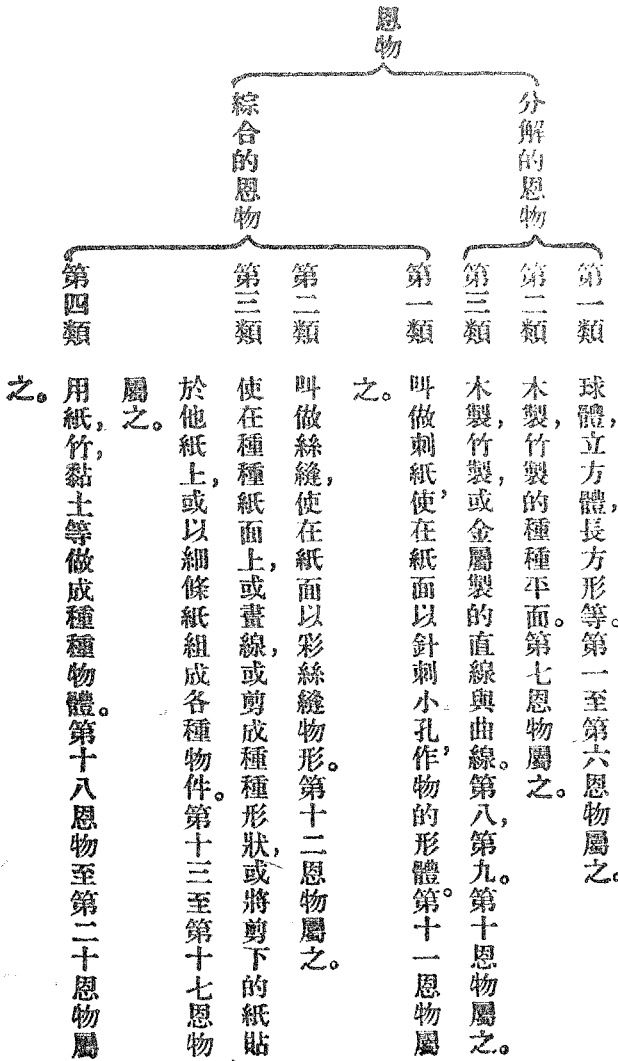 恩物
分解的恩物
第一類　球體，立方體，長方形等。第一至第六恩物屬之。
第二類　木製，竹製的種種平面。第七恩物屬之。
第三類　木製，竹製，或金屬製的直線與曲線。第八，第九。第十恩物屬之。
綜合的恩物
第一類　叫做刺紙，使在紙面以針刺小孔，作物的形體。第十一恩物屬
之。
第二類　叫做絲縫，使在紙面以彩絲縫物形。第十二恩物屬之。
第三類　使在種種紙面上，或畫線，或剪成種種形狀，或將剪下的紙貼
於他紙上，或以細條紙組成各種物件。第十三至第十七恩物
屬之。
第四類　用紙，竹，黏土等做成種種物體。第十八恩物至第二十恩物屬
之。